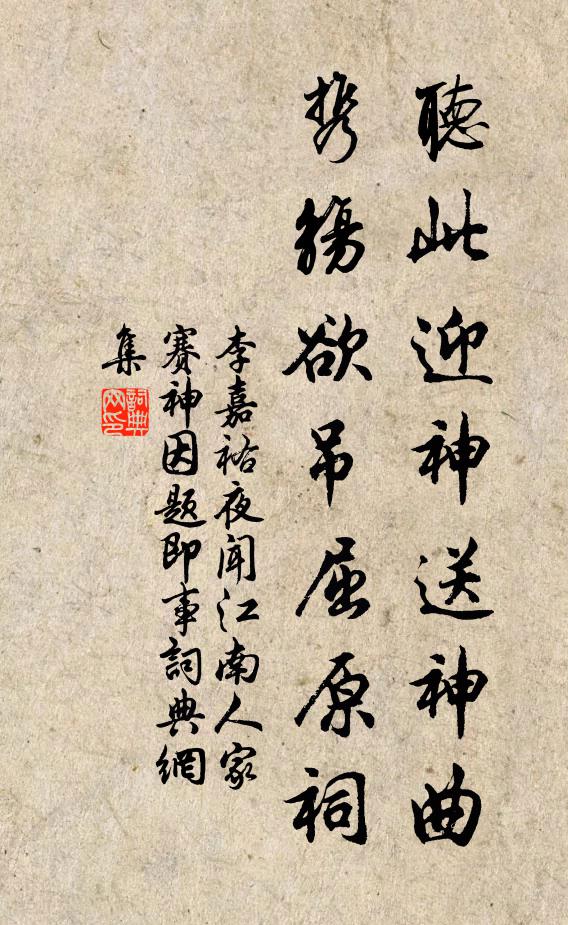 聽此迎神送神曲
携觴欲吊屈原祠
李嘉祐夜闻江南人家
賽神因题即事詞典網
集
詞典
网印